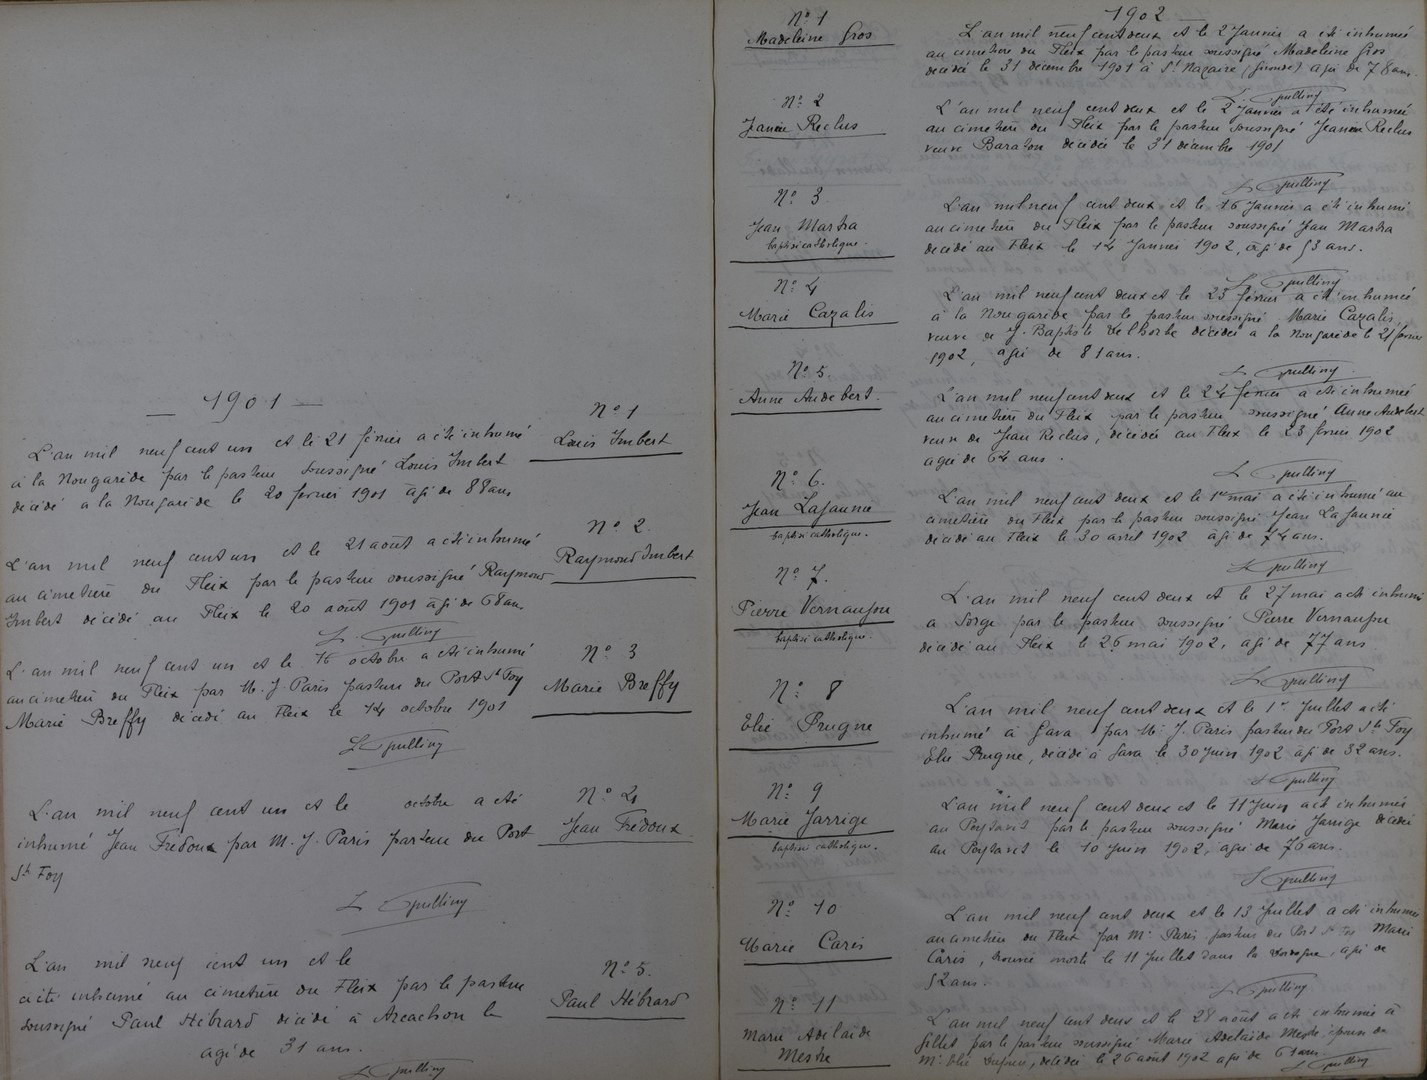 — 1901 —
N° 1
Louis Imbert
L'an mil neuf cent un et le 21 février a été inhumé
à la Nougarède par le pasteur soussigné Louis Imbert
décédé a la Nougarède le 20 février 1901 âgé de 88 ans
N° 2
Raymond Imbert
L'an mil neuf cent un et le 21 août a été inhumé
au cimetière du Fleix par le pasteur soussigné Raymond
Imbert décédé au Fleix le 20 août 1901 âgé de 68 ans
N° 3
Marie Breffy
L'an mil neuf cent un et le 16 octobre a été inhumé
au cimetière du Fleix par M. J. Paris pasteur du Port Ste Foy
Marie Breffy décédé au Fleix le 14 octobre 1901
N° 4
Jean Frédoux
L'an mil neuf cent un et le octobre a été
inhumé Jean Frédoux par M. J. Paris pasteur du Port
Ste Foy
N° 5.
Paul Hébrard
L'an mil neuf cent un et le
a été inhumé au cimetière du Fleix par le pasteur
soussigné Paul Hébrard décédé à Arcachon le
agé de 31 ans.
1902 —
N° 1
Madeleine Gros
L'an mil neuf cent deux et le 2 Janvier a été inhumée
au cimetière du Fleix par le pasteur soussigné Madeleine Gros
décédée le 31 décembre 1901 à St Nazaire (Gironde) agée de 78 ans.
N° 2
Reclus
L'an mil neuf cent deux et le 2 Janvier a été inhumée
au cimetière du Fleix par le pasteur soussigné Reclus
veuve décédée le 31 décembre 1901
N° 3
Jean Martra
baptisé catholique.
L'an mil neuf cent deux et le 16 Janvier a été inhumé
au cimetière du Fleix par le pasteur soussigné Jean Martra
décédé au Fleix le 14 Janvier 1902, âgé de 53 ans.
N° 4
Marie Cazalis
L'an mil neuf cent deux et le 23 février a été inhumée
à la Nougarède par le pasteur soussigné Marie Cazalis
veuve de J. Baptiste Delhorbe décédée a la Nougarède le 21 février
1902, agée de 81 ans.
N° 5
Anne Audebert.
L'an mil neuf cent deux et le 24 février a été inhumée
au cimetière du Fleix par le pasteur soussigné Anne Audebert
veuve de Jean Reclus, décédée au Fleix le 23 février 1902
agée de 64 ans.
N° 6.
Jean Lajaunie
baptisé catholique.
L'an mil neuf cent deux et le 1er mai a été inhumé au
cimetière du Fleix par le pasteur soussigné Jean Lajaunie
décédé au Fleix le 30 avril 1902 agé de 74 ans.
N° 7.
Pierre
baptisé catholique.
L'an mil neuf cent deux et le 27 mai a été inhumé
a Sorge par le pasteur soussigné Pierre
décédé au Fleix le 26 mai 1902, agé de 77 ans
N° 8
Elie Prugne
L'an mil neuf cent deux et le 1er Juillet a été
inhumé à Gava par Mr J. Paris pasteur du Port Ste Foy
Elie Prugne, décédé à Gava le 30 Juin 1902 âgé de 32 ans.
N° 9
Marie Jarrige
baptisé catholique.
L'an mil neuf cent deux et le 11 Juin a été inhumée
au par le pasteur soussigné Marie Jarrige décédé
au le 10 Juin 1902, agée de 76 ans.
N° 10
Marie Caris
L'an mil neuf cent deux et le 13 Juillet a été inhumée
au cimetière du Fleix par Mr Paris pasteur du Port Ste Foy Marie
Caris, trouvée morte le 11 Juillet dans la Dordogne, agée de
52 ans.
N° 11
Marie Adélaïde
Mestre
L'an mil neuf cent deux et le 28 août a été inhumée à
Gillet par le pasteur soussigné Marie Adelaïde Mestre épouse de
Mr Elie décédée le 26 août 1902 agée de 61 ans.